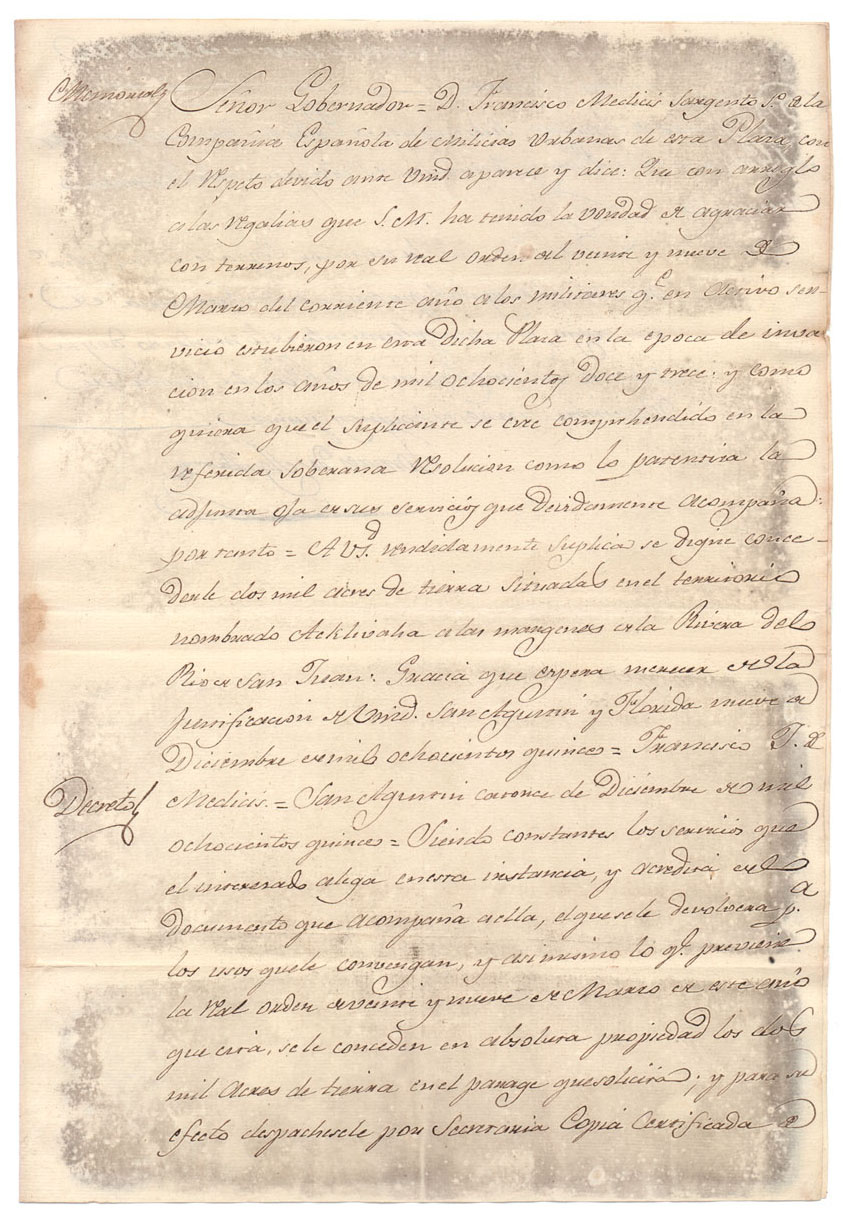 Memorial
Señor Gobernador = D. Francisco Medicis Sargento S.º de la
Compañia Española de Milicias Urbanas de esta Plaza, con
el respeto devido ante Vmd. aparece y dice: Que con arreglo
a las regalias que S. M. ha tenido la vondad de agraciar
con terrenos, por su real orden del veinte y nueve de
Marzo del corriente año a los militares q.e en Activo ser-
vicio estubieron en esta Dicha Plaza en la epoca de inva
cion en los años de mil ochocientos doce y trece: y como
quiera que el Suplicante se cree comprehendido en la
referida Soberana resolucion como lo patentiza la
adjunta oja de sus servicios que devidamente acompaña:
por tanto = A VSd. rendidamente suplica se digne conce-
derle dos mil acres de tierra situadas en el territorio
nombrado Acklivaha a las margenes de la Rivera del
Rio de San Juan: Gracia que espera merecer de la
justificacion de Vmd. San Agustin y Florida nueve de
Diciembre de mil ochocientos quince = Francisco J. de
Medicis. = San Agustin catorce de Diciembre de mil
Decreto
ochocientos quince = Siendo constantes los servicios que
el interesado alega en esta instancia, y acredita el
documento que acompaña a ella, el que se le devolvera p.a
los usos que le convengan, y asimismo lo q.e previene
la real orden de veinte y nueve de Marzo de este año
que cita, se le conceden en absoluta propiedad los dos
mil Acres de tierra en el parage que solicita; y para su
efecto despachesele por Secretaria Copia Certificada de